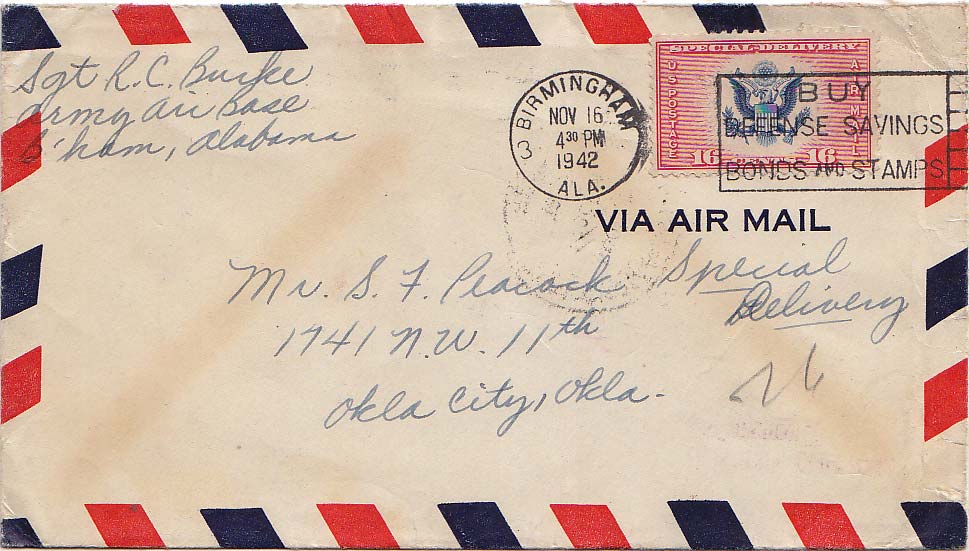 Sgt R.C. Burke
Army Air Base
B'ham, Alabama
BIRMINGHAM
NOV 16
4 30 PM
1942
ALA.
3
SPECIAL DELIVERY
U S POSTAGE
AIR MAIL
16 CENTS 16
BUY
DEFENSE SAVINGS
BONDS AND STAMPS
VIA AIR MAIL
Mr. S. F. Peacock
Special
Delivery
1741 N.W. 11th
Okla City, Okla.